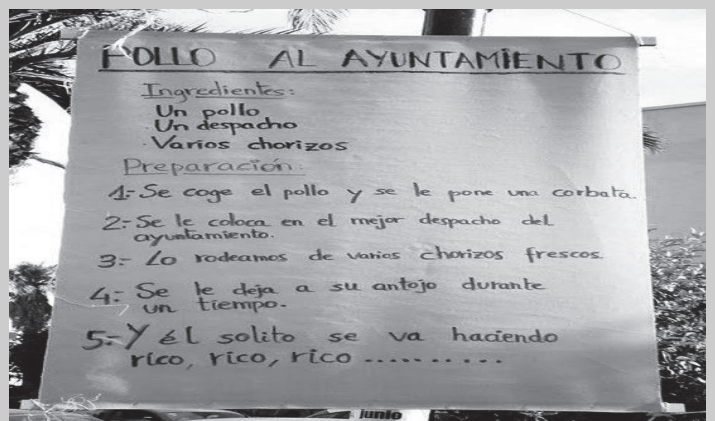 POLLO AL AYUNTAMIENTO
Ingredientes:
Un pollo
Un despacho
Varios chorizos
Preparación:
1-Se coge el pollo y se le pone una corbata.
2-Se le coloca en el mejor despacho del
ayuntamiento.
3- Lo rodeamos de varios chorizos frescos.
4- Se le deja a su antojo durante
un tiempo.
5-Y él solito se va haciendo
rico, rico, rico ..........
junio